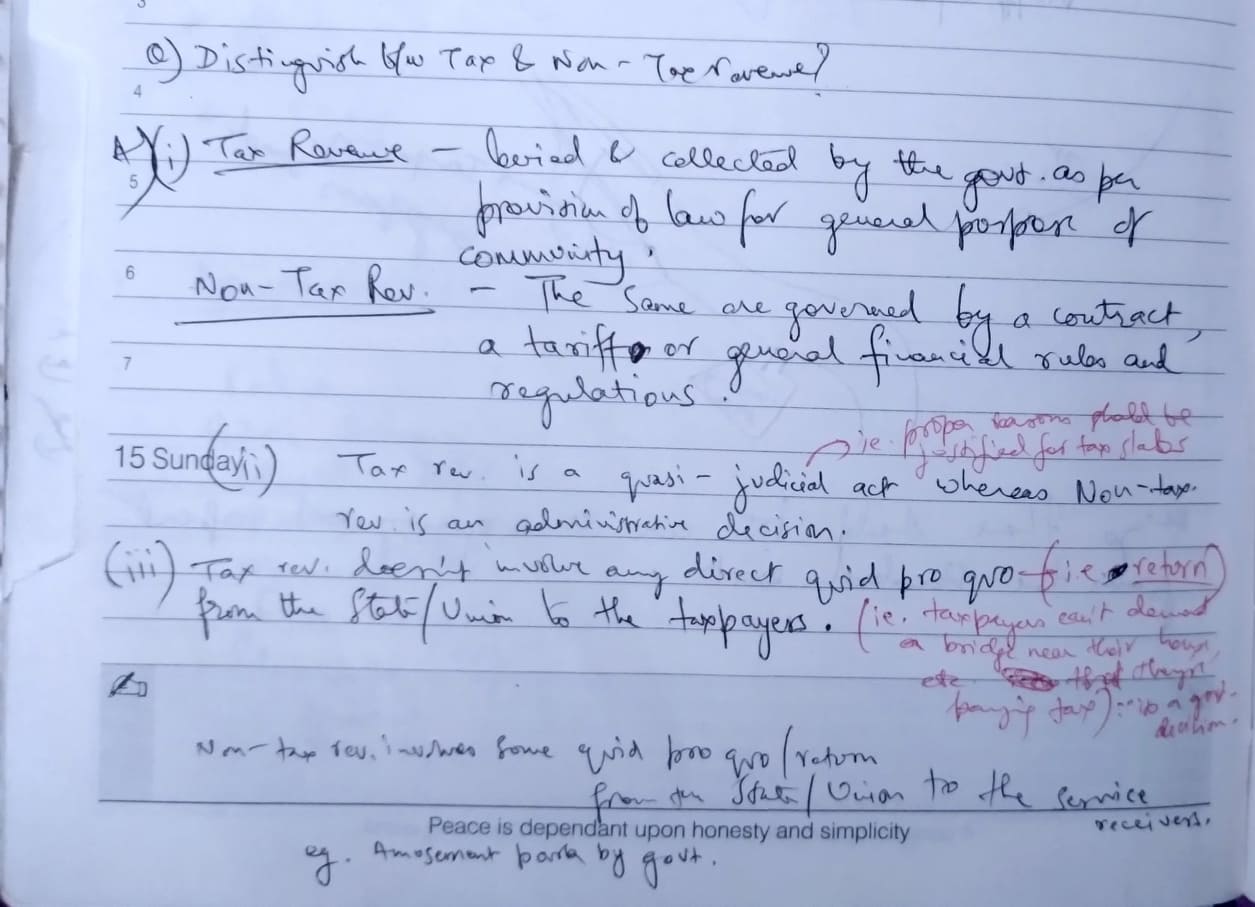 Q) Distinguish b/w Tax & Non-Tax revenue?
4
A) (i) Tax Revenue - levied & collected by the govt. as per
5
provision of law for general purpose of
community.
6
Non-Tax Rev. - The same are governed by a contract,
a tariff or general financial rules and
7
regulations.
ie. proper reasons should be
justified for tax slabs
15 Sunday (ii) Tax rev. is a quasi-judicial act whereas Non-tax
rev. is an administrative decision.
(iii) Tax rev. doesn't involve any direct quid pro quo (i.e. return)
from the State/Union to the taxpayers. (ie. taxpayers can't demand
a bridge near their house,
etc. they're
paying tax) is a govt.
decision.
Non-tax rev. involves some quid pro quo/return
from the State/Union to the service
receivers.
Peace is dependant upon honesty and simplicity
eg. Amusement park by govt.